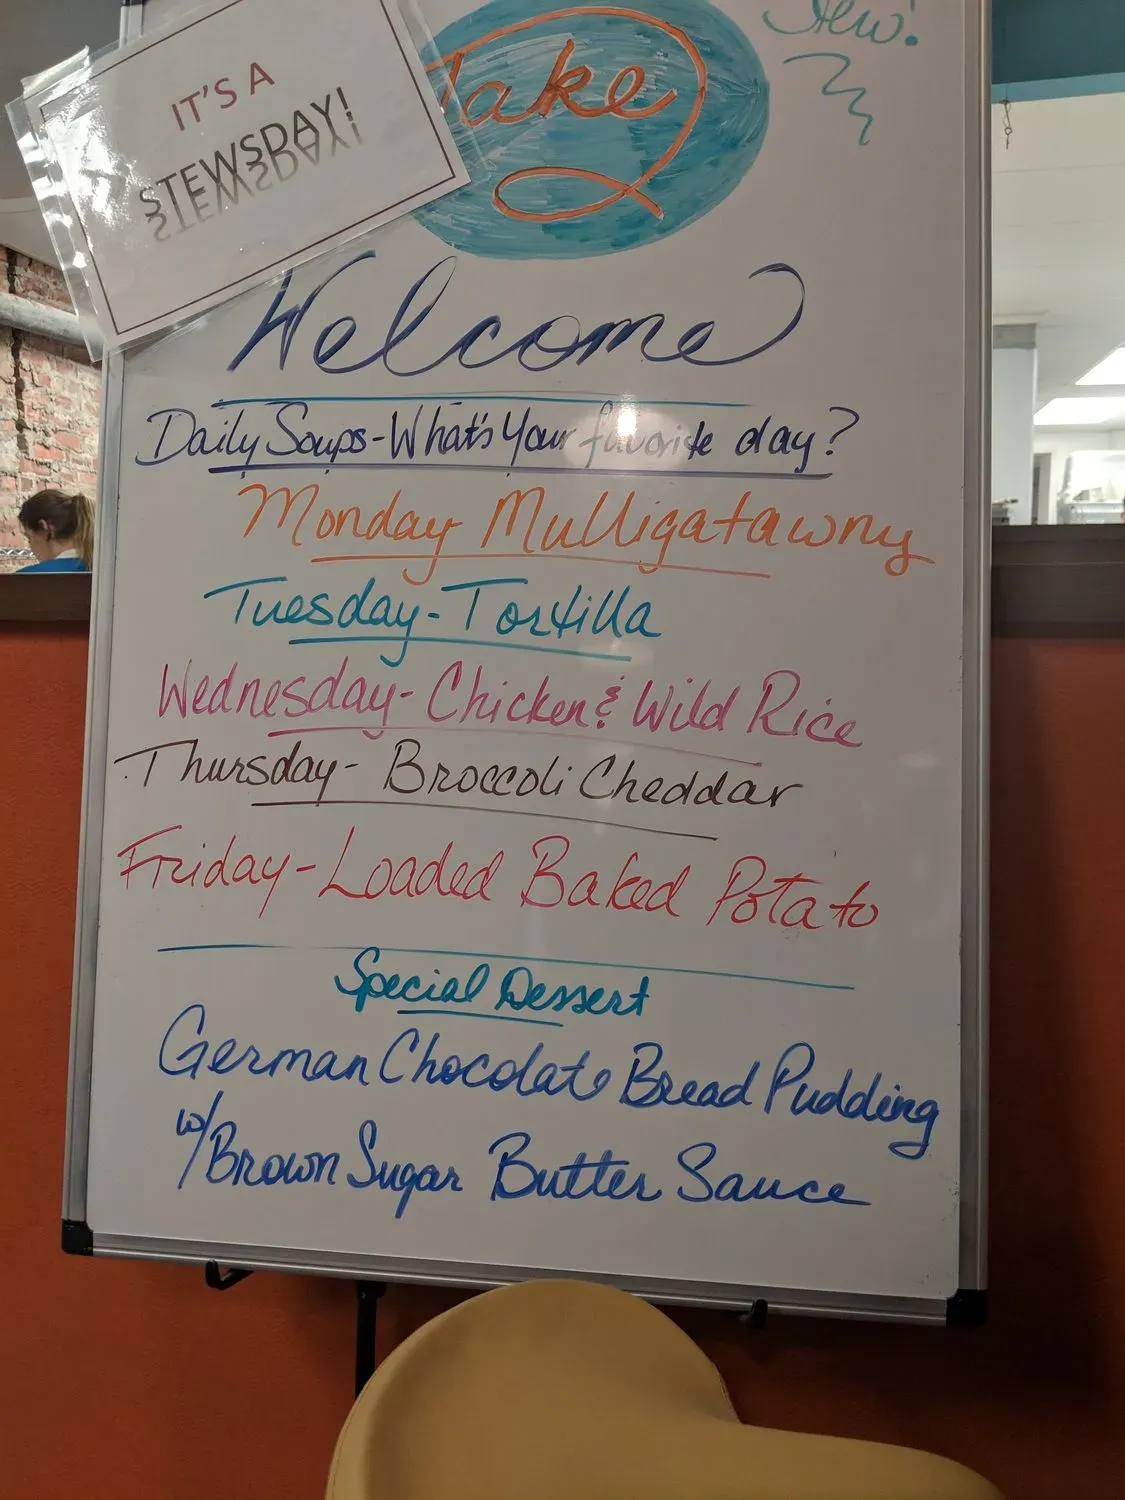 IT'S A
STEWSDAY!
Take
Welcome
Daily Soups-What's Your favorite day?
Monday Mulligatawny
Tuesday-Tortilla
Wednesday-Chicken & Wild Rice
Thursday-Broccoli Cheddar
Friday-Loaded Baked Potato
Special Dessert
German Chocolate Bread Pudding
w/Brown Sugar Butter Sauce